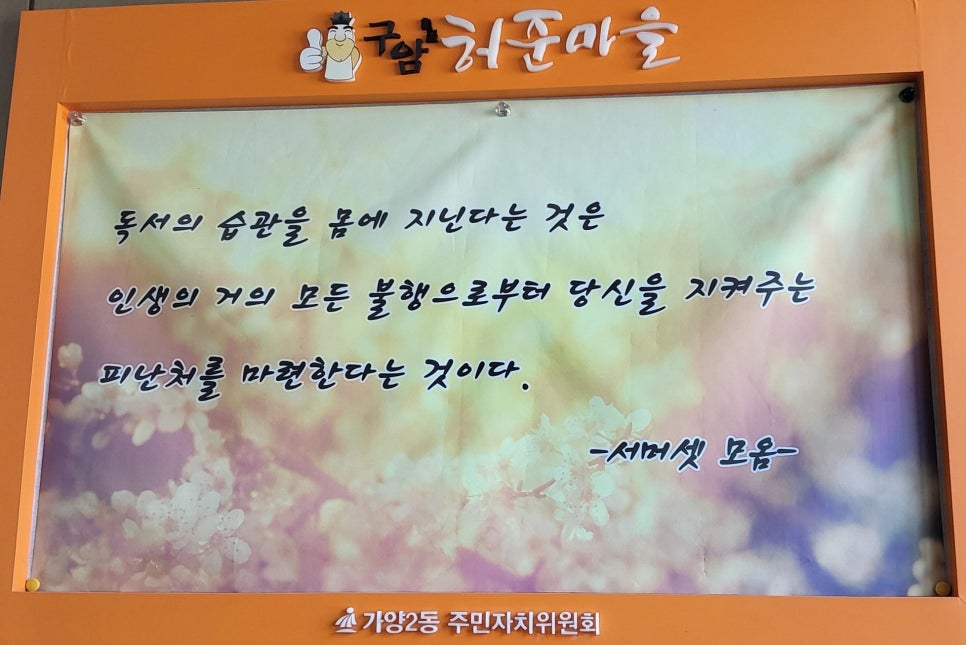 구암 허준마을
독서의 습관을 몸에 지닌다는 것은
인생의 거의 모든 불행으로부터 당신을 지켜주는
피난처를 마련한다는 것이다.
-세머셋 모옴-
가양2동 주민자치위원회